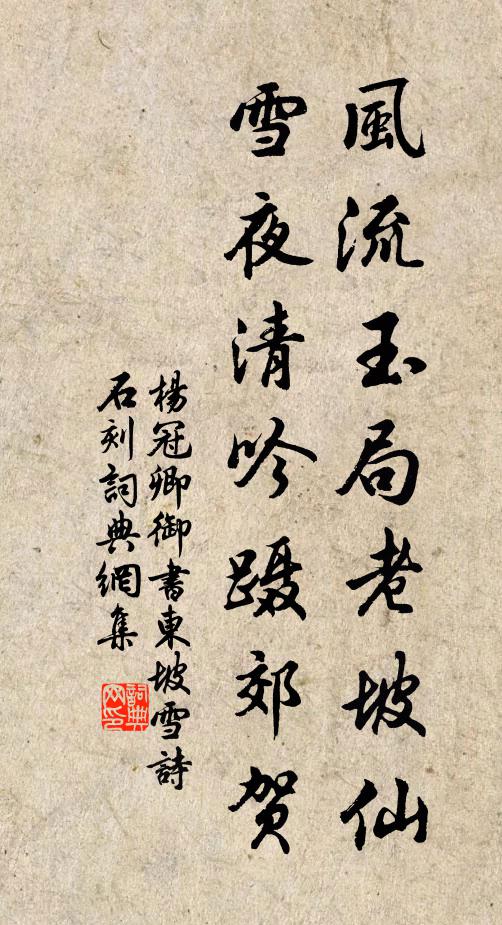 風流玉局老坡仙
雪夜清吟蹑郊贺
楊冠卿御書東坡雪詩
石刻詞典網集
詞典网印